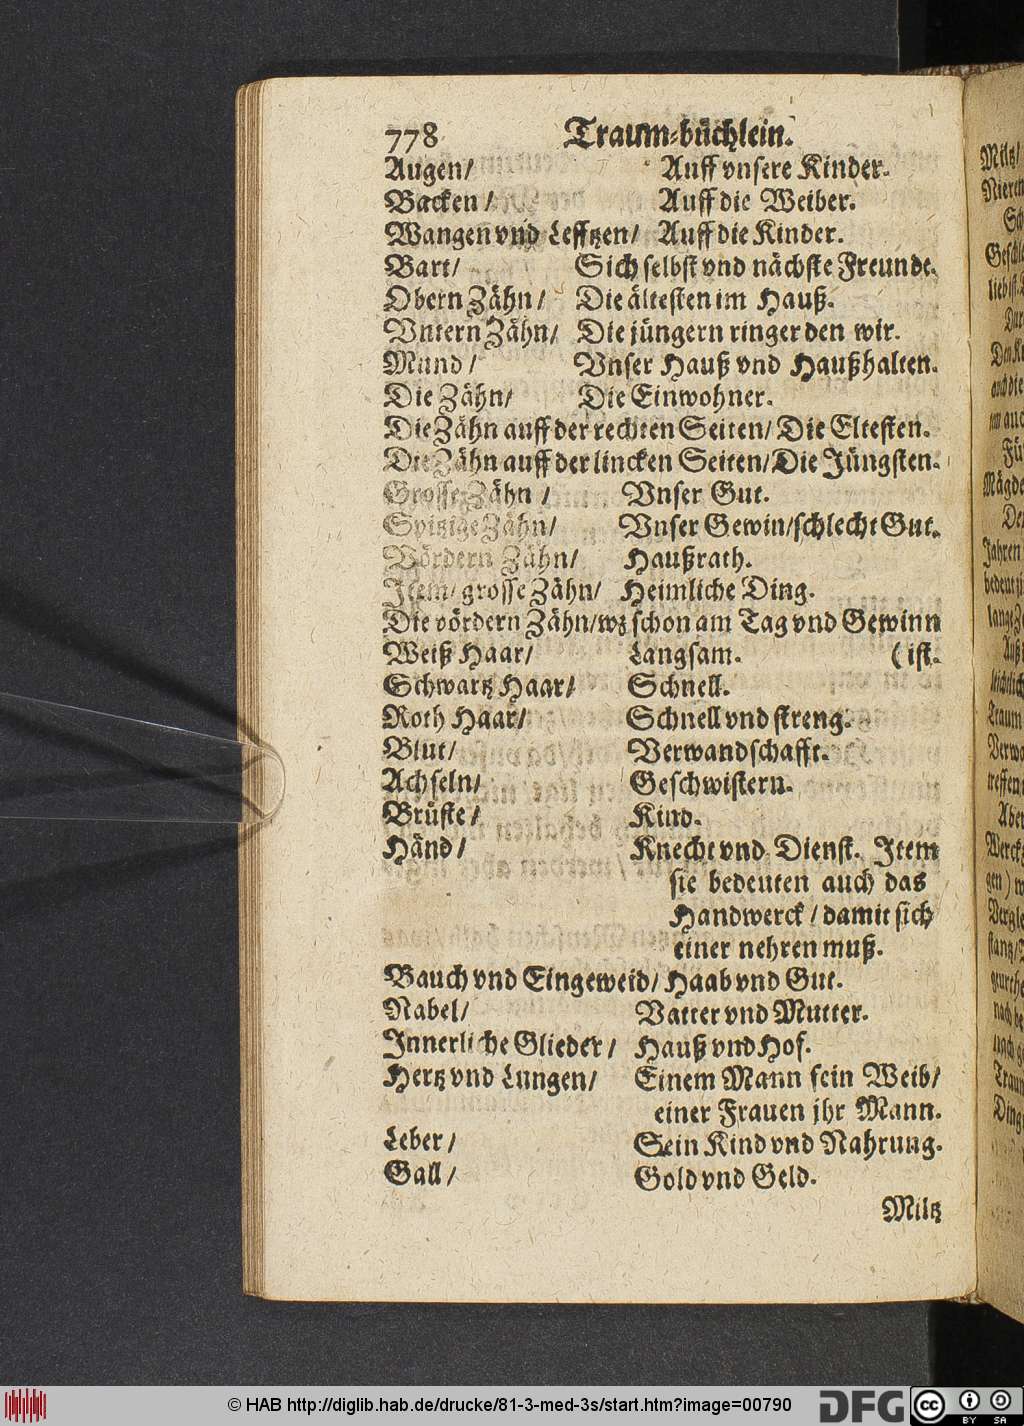 778 Traum-büchlein.
Augen/ Auff vnsere Kinder.
Backen/ Auff die Weiber.
Wangen vnd Lefftzen/ Auff die Kinder.
Bart/ Sich selbst vnd nächste Freunde.
Obern Zähn/ Die ältesten im Hauß.
Vntern Zähn/ Die jüngern ringer den wir.
Mund/ Vnser Hauß vnd Haußhalten.
Die Zähn/ Die Einwohner.
Die Zähn auff der rechten Seiten/ Die Eltesten.
Die Zähn auff der lincken Seiten/ Die Jüngsten.
Grosse Zähn/ Vnser Gut.
Spitzige Zähn/ Vnser Gewin/schlecht Gut.
Vördern Zähn/ Haußrath.
Item/ grosse Zähn/ Heimliche Ding.
Die vördern Zähn/wz schon am Tag vnd Gewinn
Weiß Haar/ Langsam. (ist.
Schwartz Haar/ Schnell.
Roth Haar/ Schnell vnd streng.
Blut/ Verwandschafft.
Achseln/ Geschwistern.
Brüste/ Kind.
Händ/ Knecht vnd Dienst. Item
sie bedeuten auch das
Handwerck/ damit sich
einer nehren muß.
Bauch vnd Eingeweid/ Haab vnd Gut.
Nabel/ Vatter vnd Mutter.
Innerliche Glieder/ Hauß vnd Hof.
Hertz vnd Lungen/ Einem Mann sein Weib/
einer Frauen jhr Mann.
Leber/ Sein Kind vnd Nahrung.
Gall/ Gold vnd Geld.
Miltz
© HAB http://diglib.hab.de/drucke/81-3-med-3s/start.htm?image=00790 DFG cc BY SA